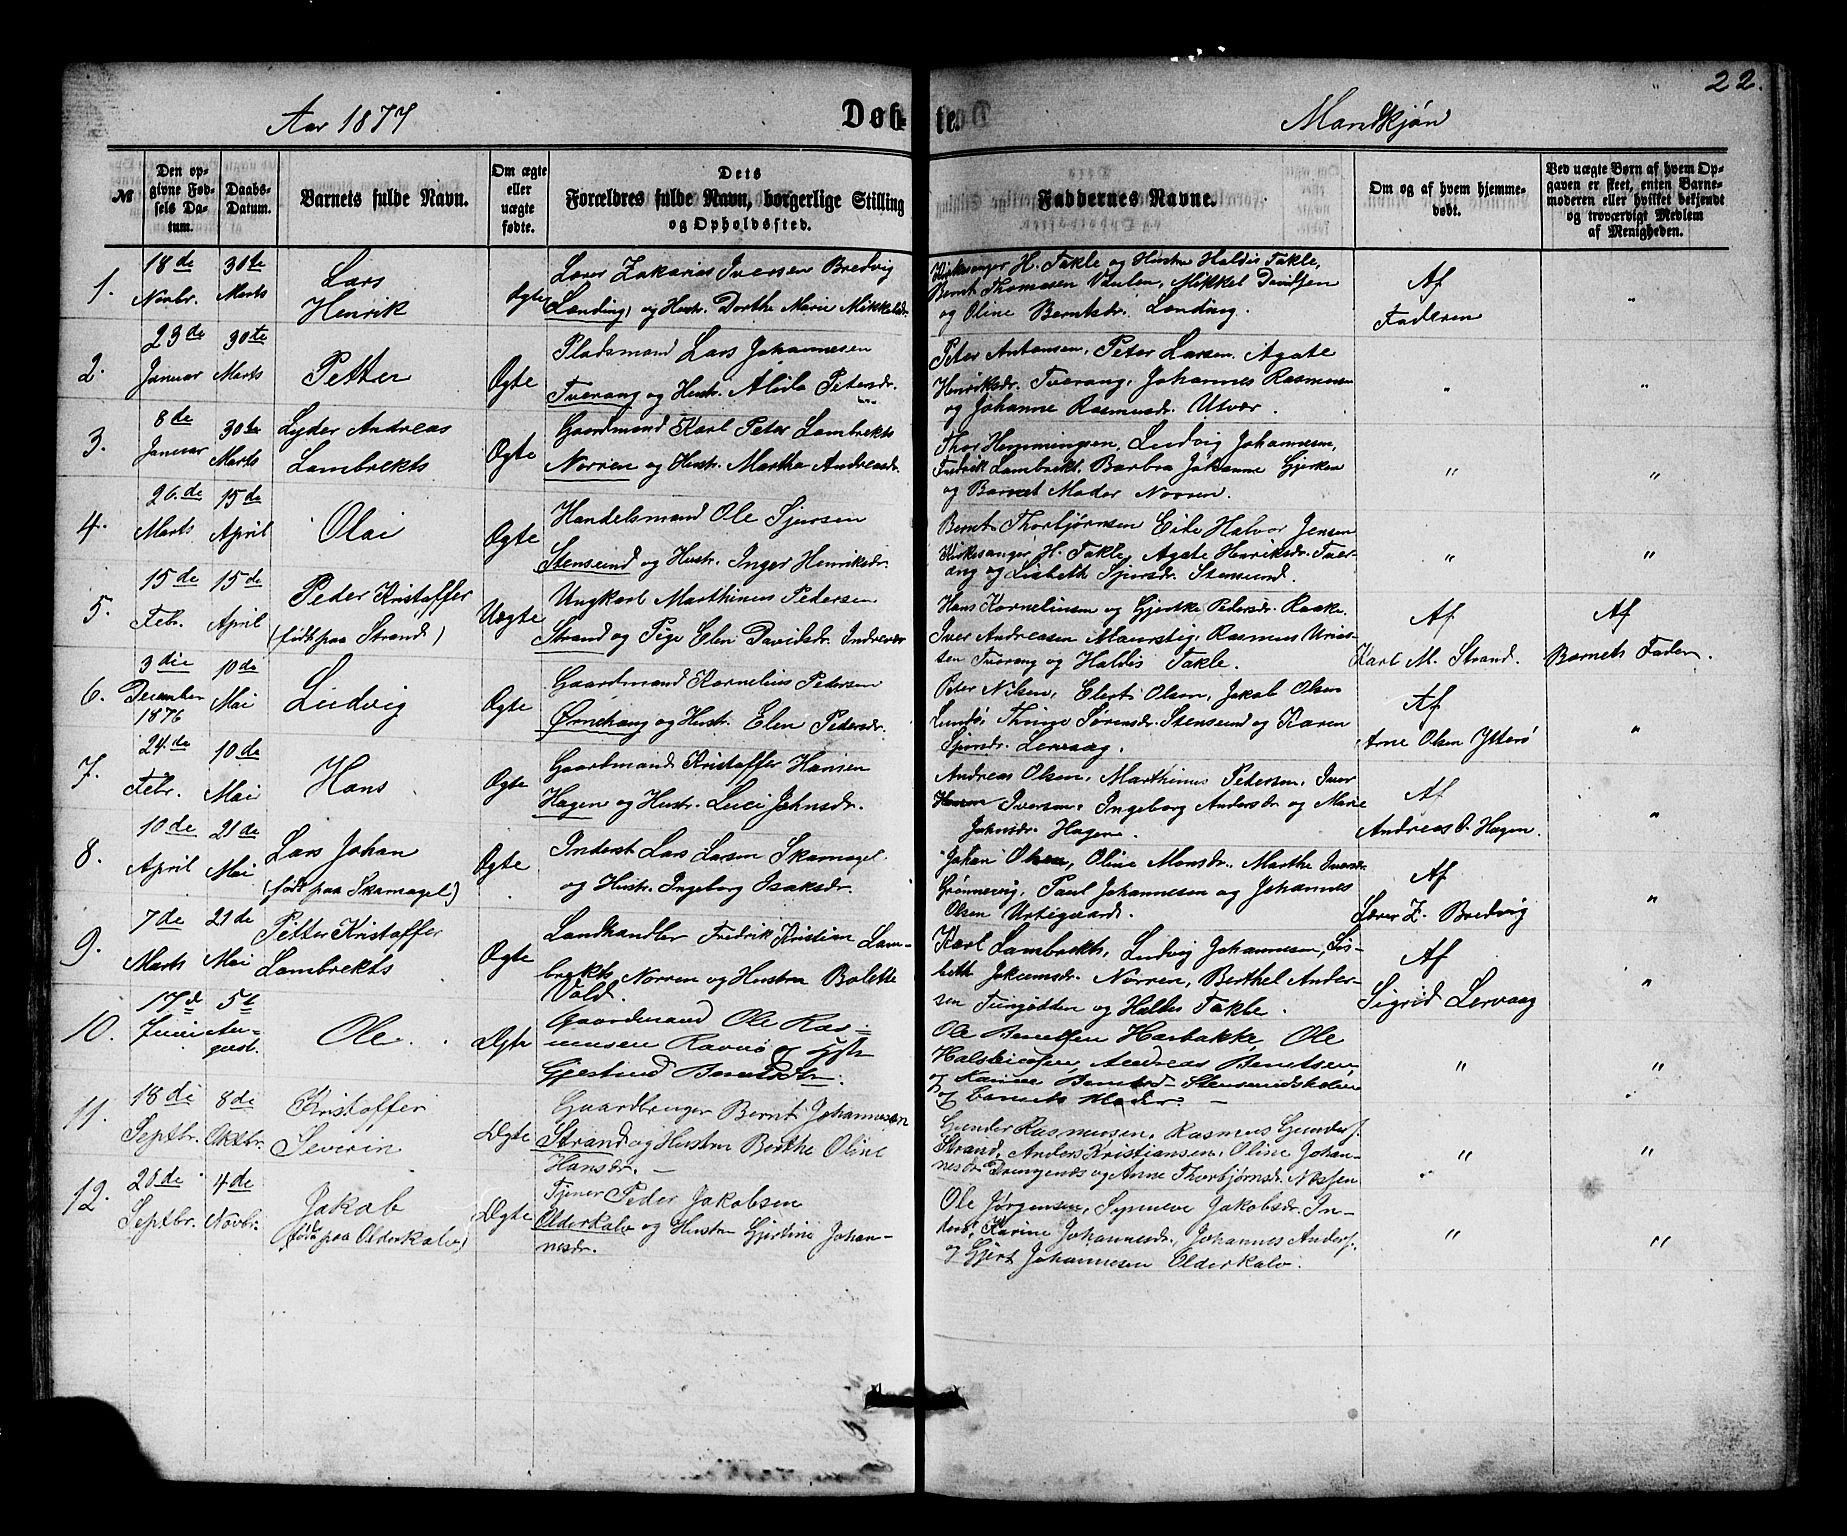 22.
Aar 1877
Døb-
te.
Mandkjøn
№
Den op-
givne Fød-
sels Da-
tum.
Daabs-
Datum.
Barnets fulde Navn.
Om ægte
eller
uægte
fødte.
Dets
Forældres fulde Navn, borgerlige Stilling
og Opholdssted.
Faddernes Navne.
Om og af hvem hjemme-
døbt.
Ved uægte Børn af hvem Op-
gaven er skeet, enten Barne-
moderen eller hvilket bekjendt
og troværdigt Medlem
af Menigheden.
1.
18de
Novbr.
30te
Marts
Lars
Henrik
Ægte
Lærer Zakarias Iversen Bredvig
(Lending) og Hustr. Dorthe Marie Mikkelsdr.
Kirkesanger H. Takle og Hustru Haldis Takle,
Bernt Thomasen Vaulen, Mikkel Davidsen
og Oline Berntsdr. Lending.
Af
Faderen
"
2.
23de
Januar
30te
Marts
Petter
Ægte
Pladsmand Lars Johannesen
Tverang og Hustr. Alida Petersdr.
Peter Antonsen, Peter Larsen, Agate
Henriksdr. Tverang, Johannes Rasmusen
og Johanne Rasmusdr. Utvær.
"
"
3.
8de
Januar
30te
Marts
Lyder Andreas
Lambrekts
Ægte
Gaardmand Karl Peter Lambrekts
Norren og Hustr. Martha Andreasdr.
Thor Hermingsen, Ludvig Johannesen,
Fredrik Lambrekt, Barbra Johanne Gjerken
og Barnet Moder Norren.
"
"
4.
26.de
Marts
15de
April
Olai
Ægte
Handelsmand Ole Sjursen
Stensund og Hustr. Inger Henriksdr.
Bernt Thorbjørnsen Eide Halvor Jensen
Kirkesanger H. Takle, Agate Henriksdr. Tver-
ang og Lisbeth Sjursdr. Stensund.
"
"
5.
15de
Febr.
15de
April
Peder Kristoffer
(født paa Strand)
Uægte
Ungkarl Marthinus Pedersen
Strand og Pige Elen Davidsdr. Indrevær
Hans Kornelius en og Gjertke Pedersdr. Raake.
Iver Andreasen Maurstig, Rasmus Urias-
sen Tverang og Haldis Takle.
Af
Karl M. Strand.
Af
Barnets Fader.
6.
3die
December
1876
10de
Mai
Ludvig
Ægte
Gaardmand Kornelius Pedersen
Ørnehaug og Hustr. Elen Pedersdr.
Peter Nilsen, Elert Olsen, Jakob Olsen
Lundø, Thrine Sørensdr. Stensund og Karen
Sjursdr. Lervaag.
Af
Arne Olsen Ytterø
"
7.
24.de
Febr.
10de
Mai
Hans
Ægte
Gaardmand Kristoffer Hansen
Hagen og Hustr. Luci Johnsdr.
Andreas Olsen, Marthinus Pedersen, Iver
Iversen, Ingeborg Andersdr og Marie
Johnsdr. Hagen.
Af
Andreas O. Hagen.
"
8.
10de
April
21de
Mai
Lars Johan
(født paa Skarnagel)
Ægte
Inderst Lars Larsen Skarnagel.
og Hustr. Ingeborg Isaksdr.
Johan Olsen, Oline Monsdr. Marthe Iversdr.
Grønnevig, Paul Johannesen og Johannes
Olsen Urtegaard.
Af
Lærer Z. Bredvig
"
9.
7de
Marts
21de
Mai
Petter Kristoffer
Lambrekts
Ægte
Landhandler Fredrik Kristian Lam-
brekts, Norren og Hustru Bolette
Vold.
Karl Lambrekts, Ludvig Johannesen, Lis-
beth Joksumsdr. Norren, Berthel Ander-
sen Tungodden og Haldis Takle.
Af
Sigrid Lervaag
"
10.
17d
Juni
5t
Au-
gust.
Ole
Ægte
Gaardmand Ole Ras-
mussen Ravnø og Hstr
Gjestrud Berntsdtr.
Ole Berntsen Harbakke, Ole
Halsteinsen, Andreas Berntsen,
og Karine Berntsd Stensundsholm
og barnets Moder. —
"
"
11.
18de
Septbr.
8de
Oktbr.
Kristoffer
Severin
Ægte
Gaardbruger Bernt Johannesen
Strand og Hustru Berthe Oline
Hansdr. —
Gunder Rasmussen, Rasmus Gunders.
Strand, Anders Kristiansen, Oline Johan-
nesdr. Drengenes og Anne Thorbjørnsdr. Nessen
"
"
12.
26de
Septbr.
4de
Novbr.
Jakob
(født paa Olderkalv)
Ægte
Tjener Peder Jakobsen
Olderkalv og Hustru Gjertine Johan-
nesdr.
Ole Jørgensen, Synneve Jakobsdr. In-
derø, Karine Johannesdr., Johannes Anders.
og Gjert Johannesen Olderkalv.
"
"